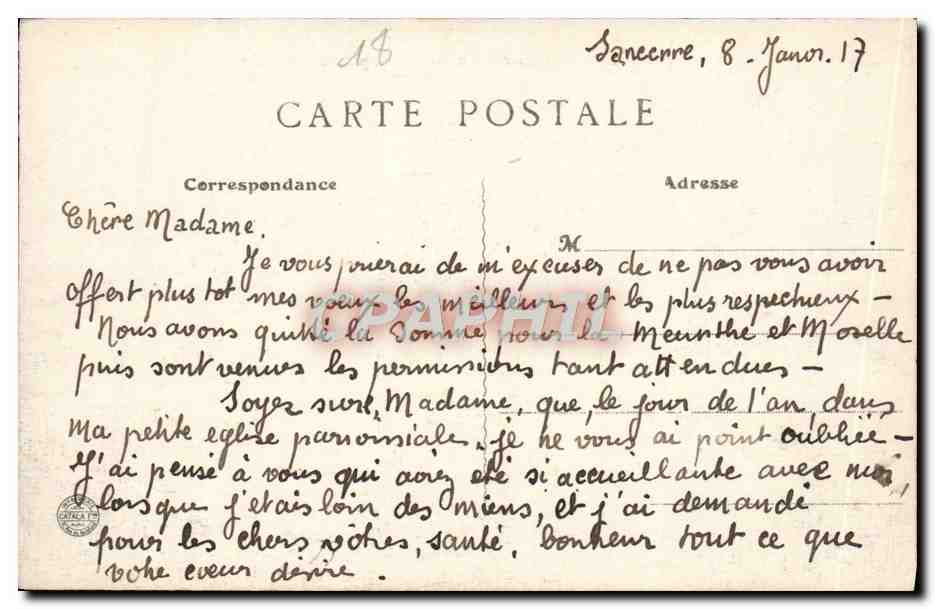 18
Sancerre, 8. Janvr. 17
CARTE POSTALE
Correspondance
Adresse
Chère Madame,
M
Je vous prierai de m'excuser de ne pas vous avoir
offert plus tôt mes voeux les meilleurs et les plus respectueux –
Nous avons quitté la Somme pour la Meurthe et Moselle
puis sont venues les permissions tant attendues –
Soyez sure, Madame, que, le jour de l'an, dans
ma petite eglise paroissiale, je ne vous ai point oubliée –
J'ai pensé à vous qui avez été si accueillante avec moi,
lorsque j'étais loin des miens, et j'ai demandé
pour les chers vôtres, santé, bonheur tout ce que
votre coeur désire.
CATALA
CPAPHIL